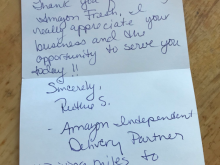 Thank you
Amazon Fresh, I
really appreciate your
business and the
opportunity to serve you
today!!
Sincerely,
S.
- Amazon Independent
Delivery Partner
miles to